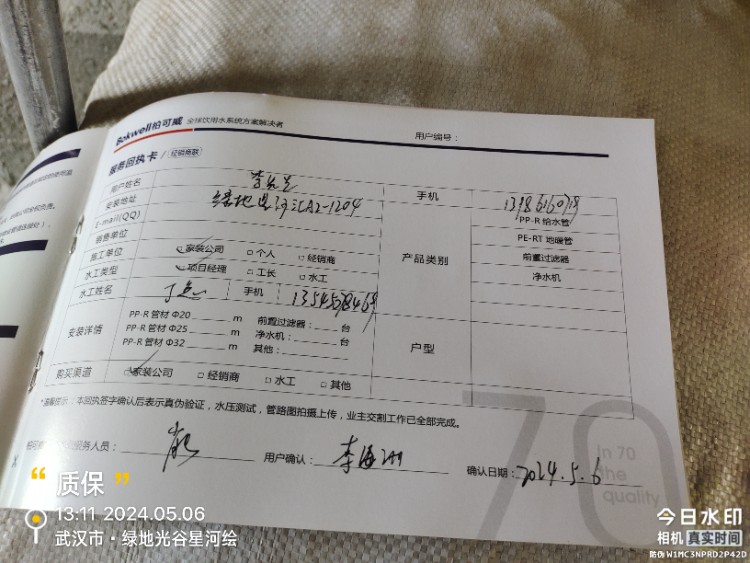 Bokwell柏可威 全球饮用水系统方案解决者
用户编号：
服务回执卡 / 经销商联
用户姓名 李先生 手机
安装地址 绿地星河汇A2-1204
E-mail(QQ) PP-R 给水管
销售单位 PE-RT 地暖管
施工单位 家装公司 □ 个人 □ 经销商 产品类别 前置过滤器
水工类型 项目经理 □ 工长 □ 水工 净水机
水工姓名 手机
安装详情 户型
PP-R 管材 Φ20 m 前置过滤器： 台
PP-R 管材 Φ25 m 净水机： 台
PP-R 管材 Φ32 m 其他：
购买渠道 家装公司 □ 经销商 □ 水工 □ 其他
：本回执签字确认后表示真伪验证，水压测试，管路图拍摄上传，业主交割工作已全部完成。
服务人员： 用户确认： 李海洲 确认日期：2024.5.6
70
in 70
the
quality
“质保”
13:11 2024.05.06
武汉市·绿地光谷星河绘
今日水印
相机 真实时间
防伪 W1MC3NPRD2P42D